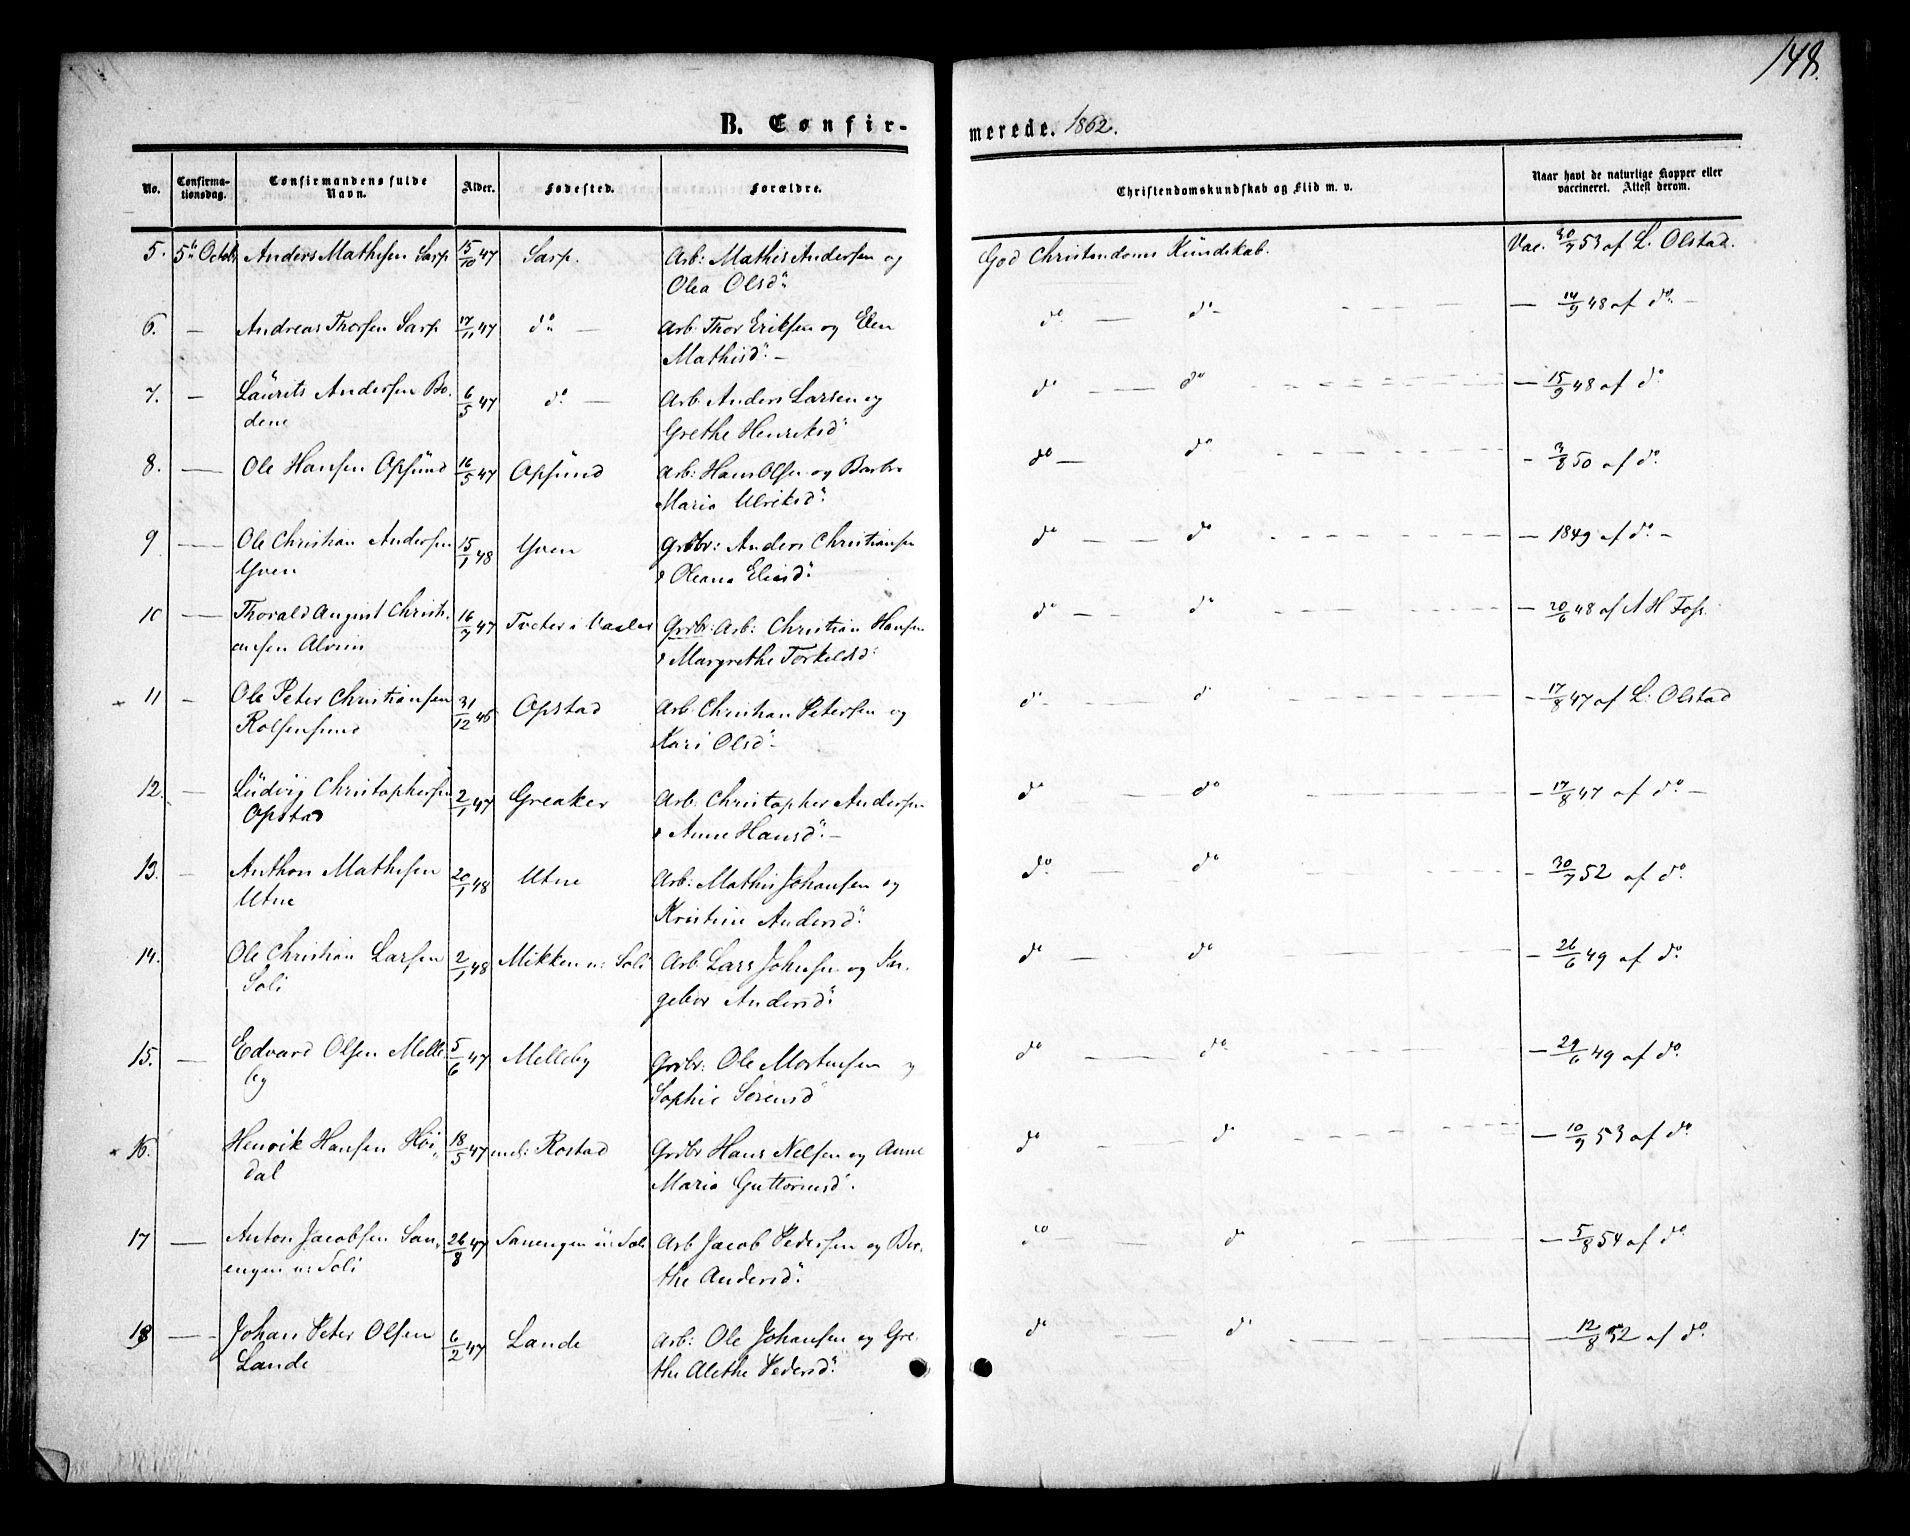 148.
B. Confir-
merede. 1862.
No.
Confirma-
tionsdag.
Confirmandens fulde
Navn.
Alder.
Fødested.
Forældre.
Christendomskundskab og Flid m. v.
Naar havt de naturlige Kopper eller
vaccineret. Attest derom.
5. 5te Octob. Anders Mathisen Sarp 15/10 47 Sarp. Arb: Mathis Andersen og God Christendoms Kundskab. Vac. 30/7 53 af L. Olstad.
Olea Olsd.
6. — Andreas Thorsen Sarp 17/11 47 do — Arb: Thor Eriksen og Elen do — do — 14/9 48 af do —
Mathisd. —
7. — Laurits Andersen Bo- 6/5 47 do — Arb: Anders Larsen og do — do — 15/9 48 af do
dene Grethe Henriksd.
8. — Ole Hansen Opsund 16/5 47 Opsund Arb: Hans Olsen og Barbr. do — do — 3/8 50 af do
Maria Ulriksd.
9 — Ole Christian Andersen 15/1 48 Yven Grdbr: Anders Christiansen do — do — 1849 af do —
Yven & Oleana Eliasd.
10 — Thorald August Christi- 16/7 47 Tveter i Vaaler Grdbr: Arb: Christian Hansen do — do — 20/6 48 af A H Foss
ansen Alvim & Margrethe Torkelsd.
11 — Ole Peter Christiansen 31/12 46 Opstad Arb: Christian Petersen og do — do — 17/8 47 af L: Olstad
Rolfsøsund Kari Olsd —
12. — Ludvig Christophersen 2/1 47 Greaker Arb: Christopher Andersen do — do — 17/8 47 af do —
Opstad & Anne Hansd. —
13. — Anthon Mathisen 20/1 48 Utne Arb: Mathis Johansen og do — do — 30/7 52 af do
Utne Kristine Andersd.
14. Ole Christian Larsen 2/1 48 Mikken u: Soli Arb: Lars Johnsen og In- do — do — 26/6 49 af do
Soli gebor Andersd.
15. — Edvard Olsen Melle- 5/6 47 Melleby Grdbr: Ole Mortensen og do — do — 29/6 49 af do
by Sophie Sørensd
16. Henrik Hansen Høi- 18/5 47 Rostad Grdbr Hans Nelsen og Anne do — do — 10/9 53 af do
dal Maria Guttormsd.
17 — Anton Jacobsen San- 26/8 47 Sanengen u: Soli Arb: Jacob Pedersen og Ber- do — do — 5/8 54 af do
engen u: Soli the Andersd.
18 — Johan Peter Olsen 6/2 47 Lande Arb: Ole Johansen og Gre- do — do — 12/8 52 af do
Lande the Alethe Pedersd.